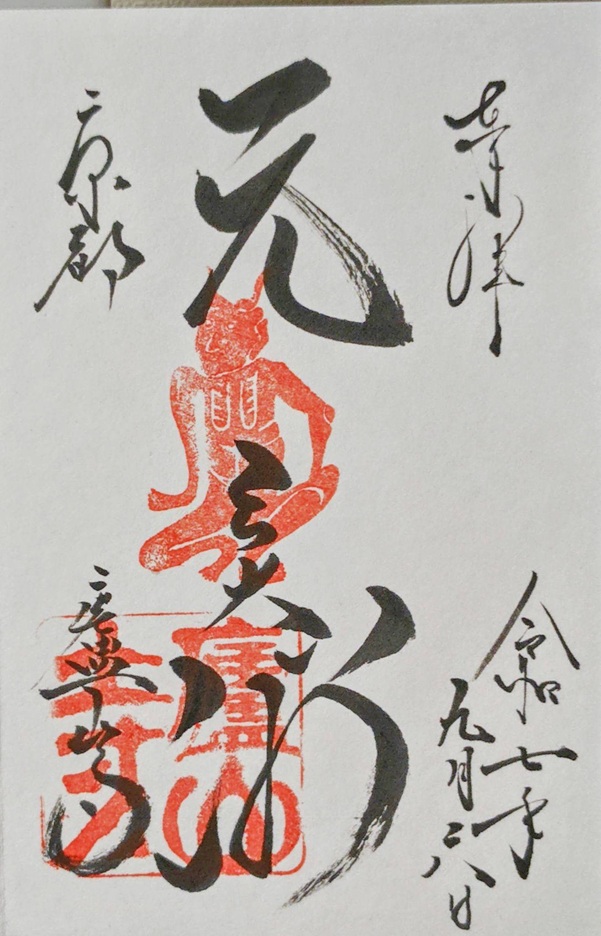 奉拝
令和七年
九月二八日
元三大師
京都
廬山寺